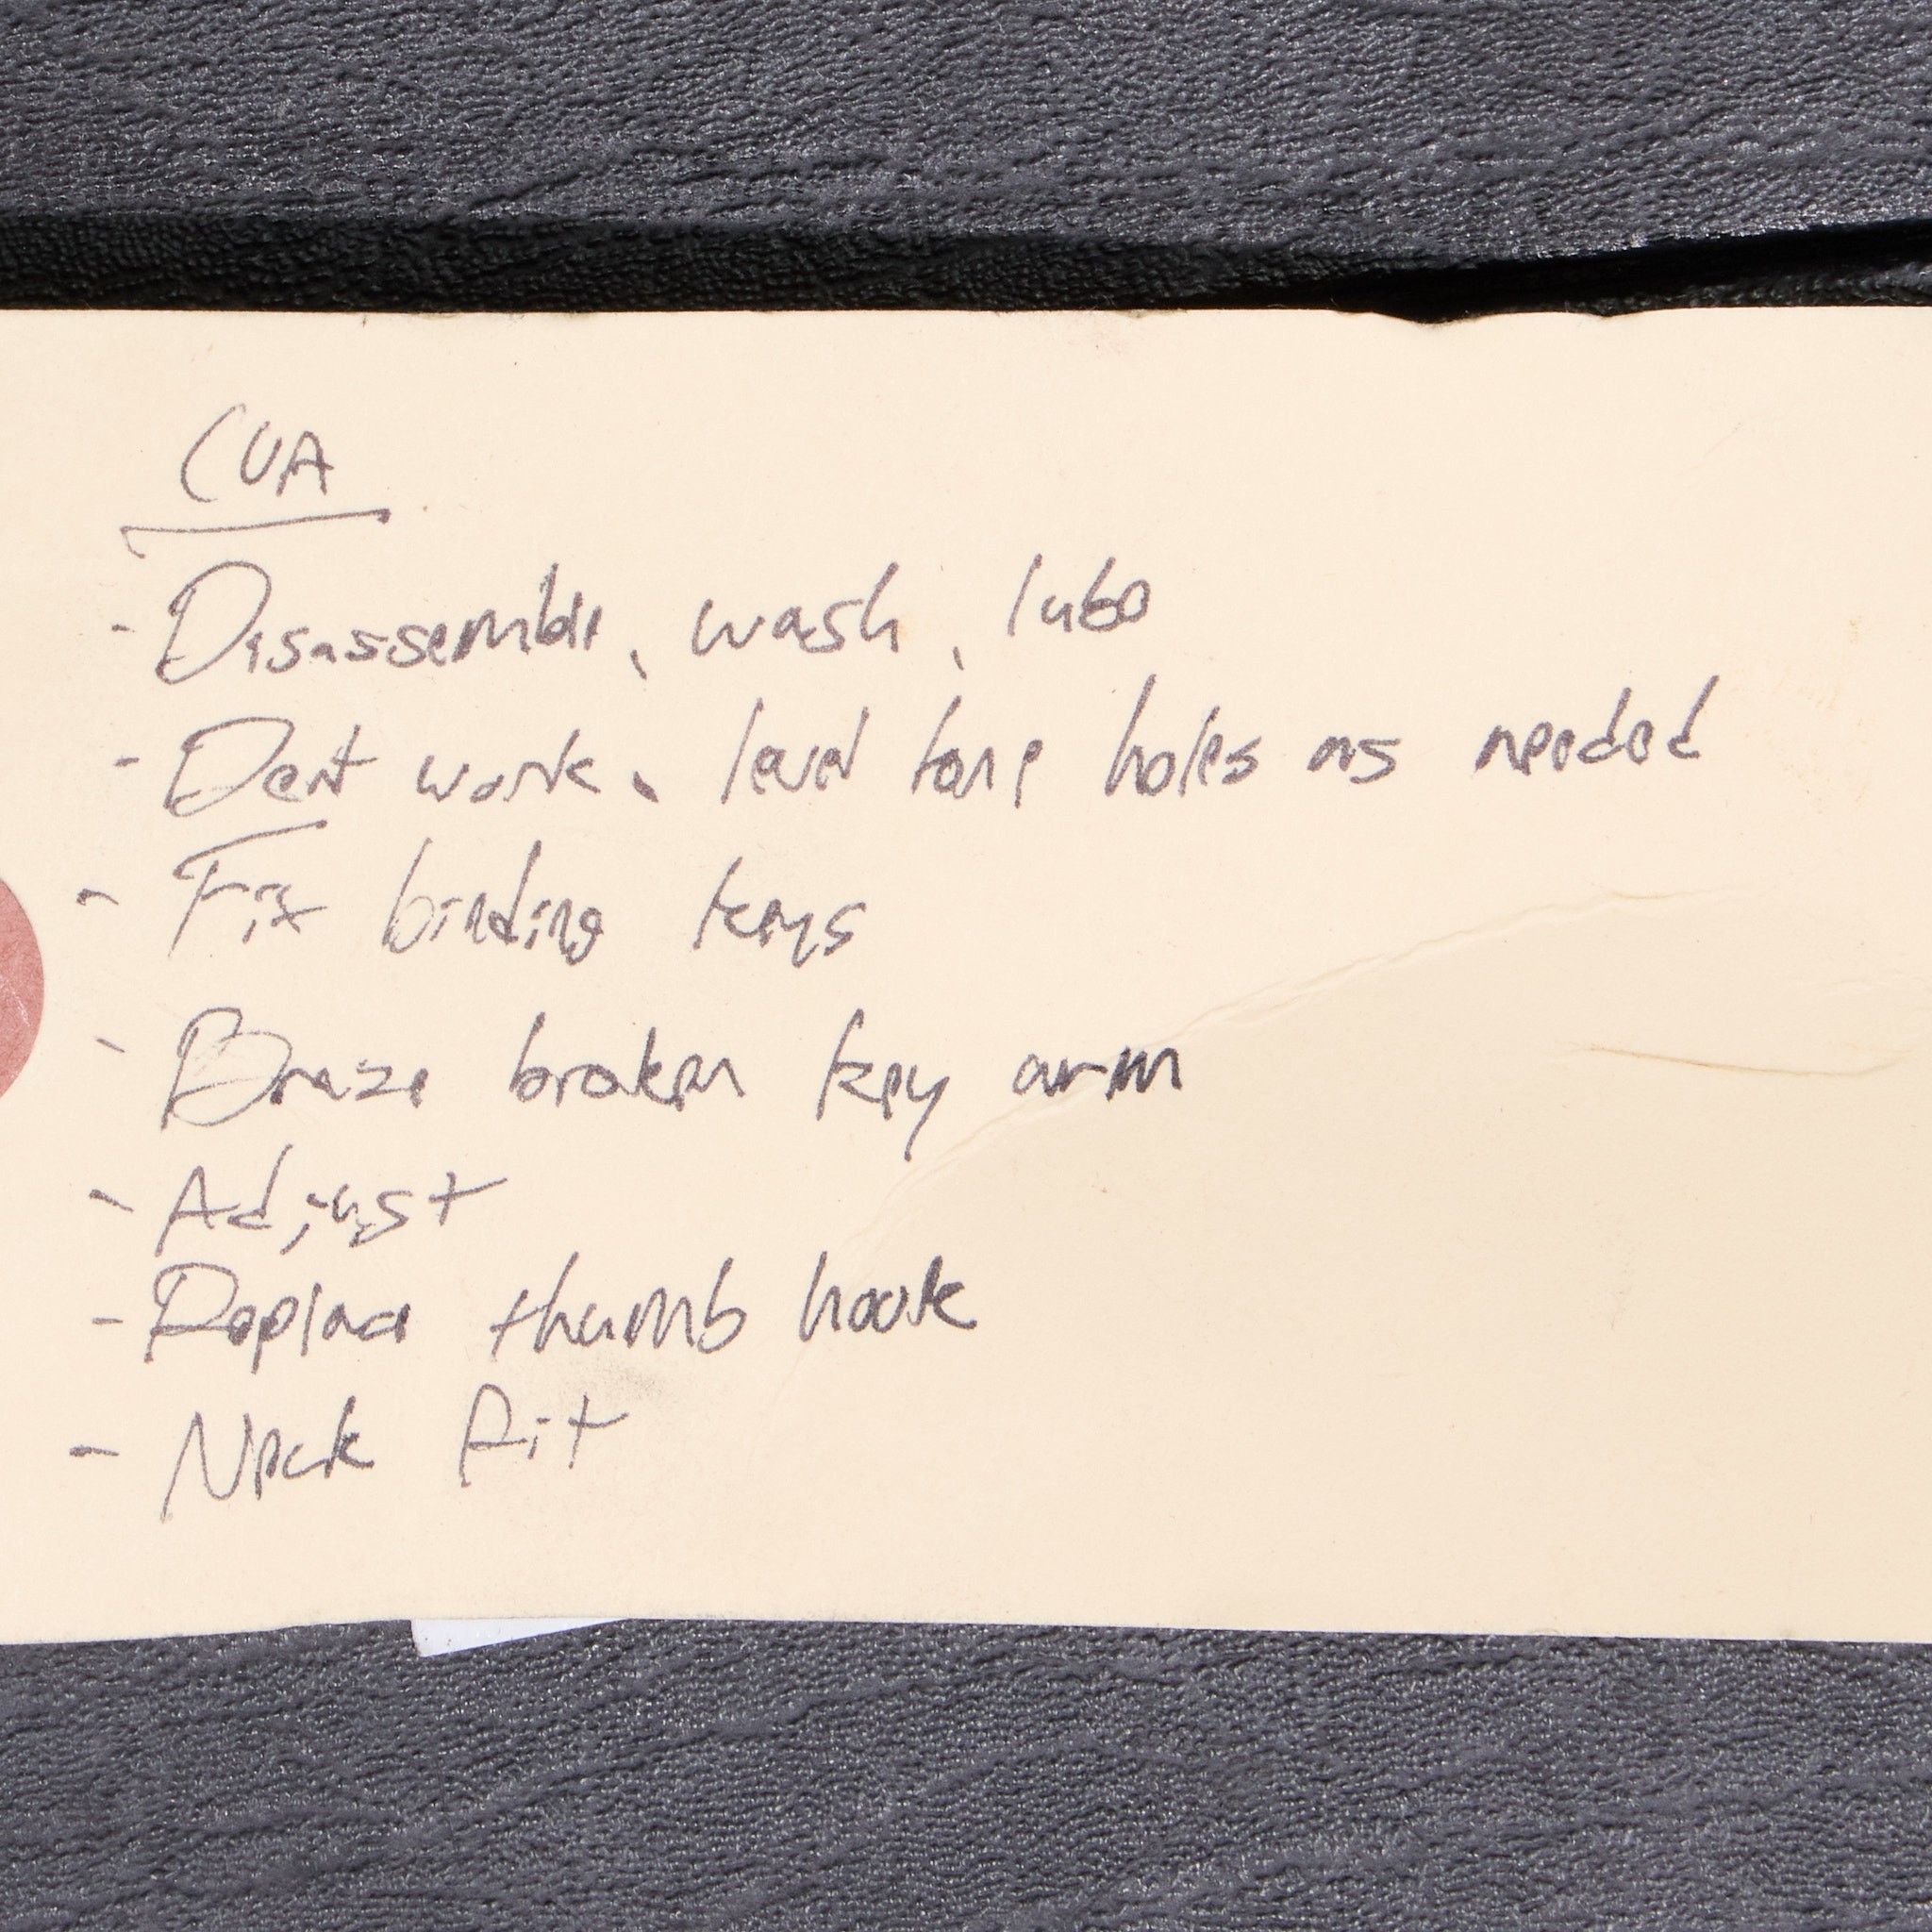 CUA
- Disassemble, wash, lube
- Dent work, level tone holes as needed
- Fix binding keys
- Braze broken key arm
- Adjust
- Replace thumb hook
- Neck fit